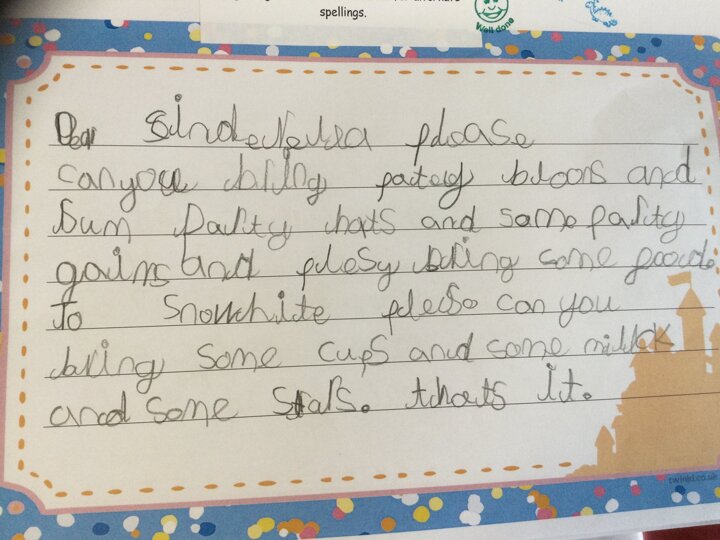 spellings.
Well done
Dear Sinderella please
can you bring partey bloons and
sum party hats and some party
gains and plesy bring some food.
To Snowhite pleese can you
bring some cups and some millck
and some stars. thats it.
twinkl.co.uk